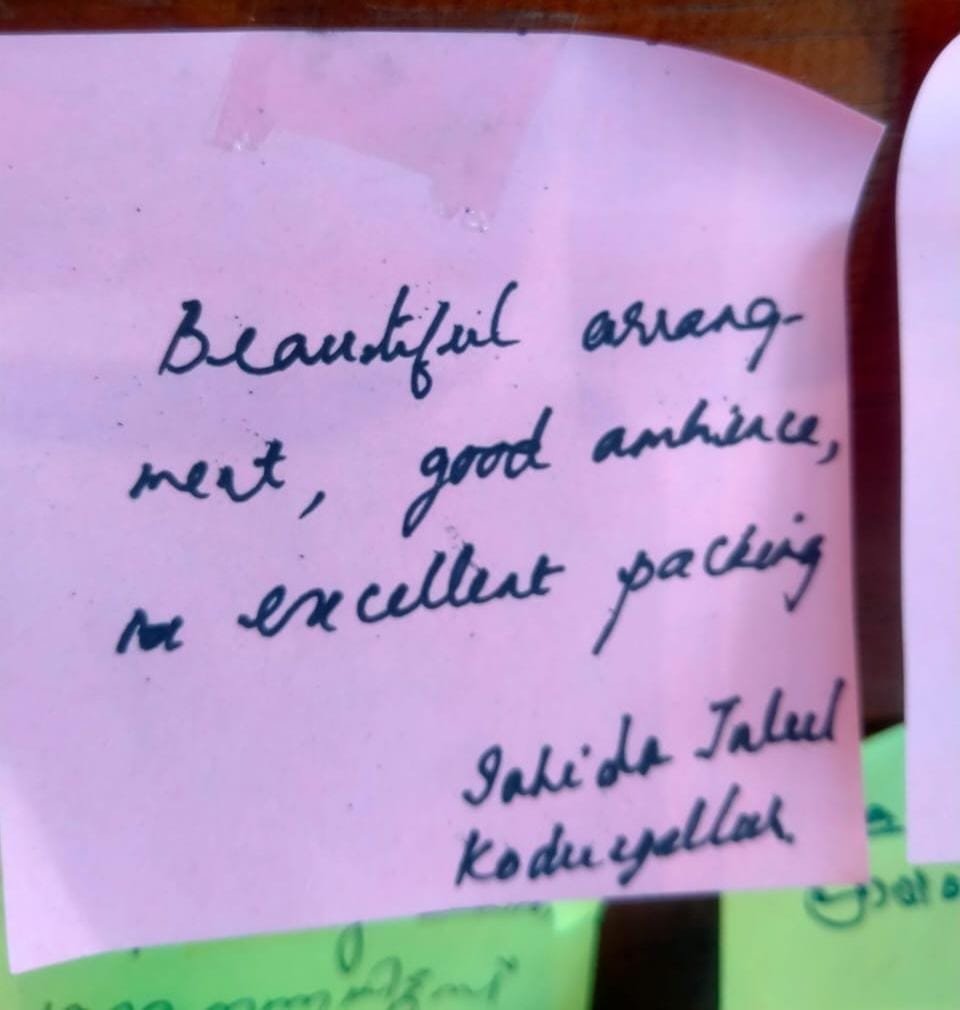 Beautiful arrang-
ment, good ambience,
excellent packing
Sahida Jaleel
Koduvally